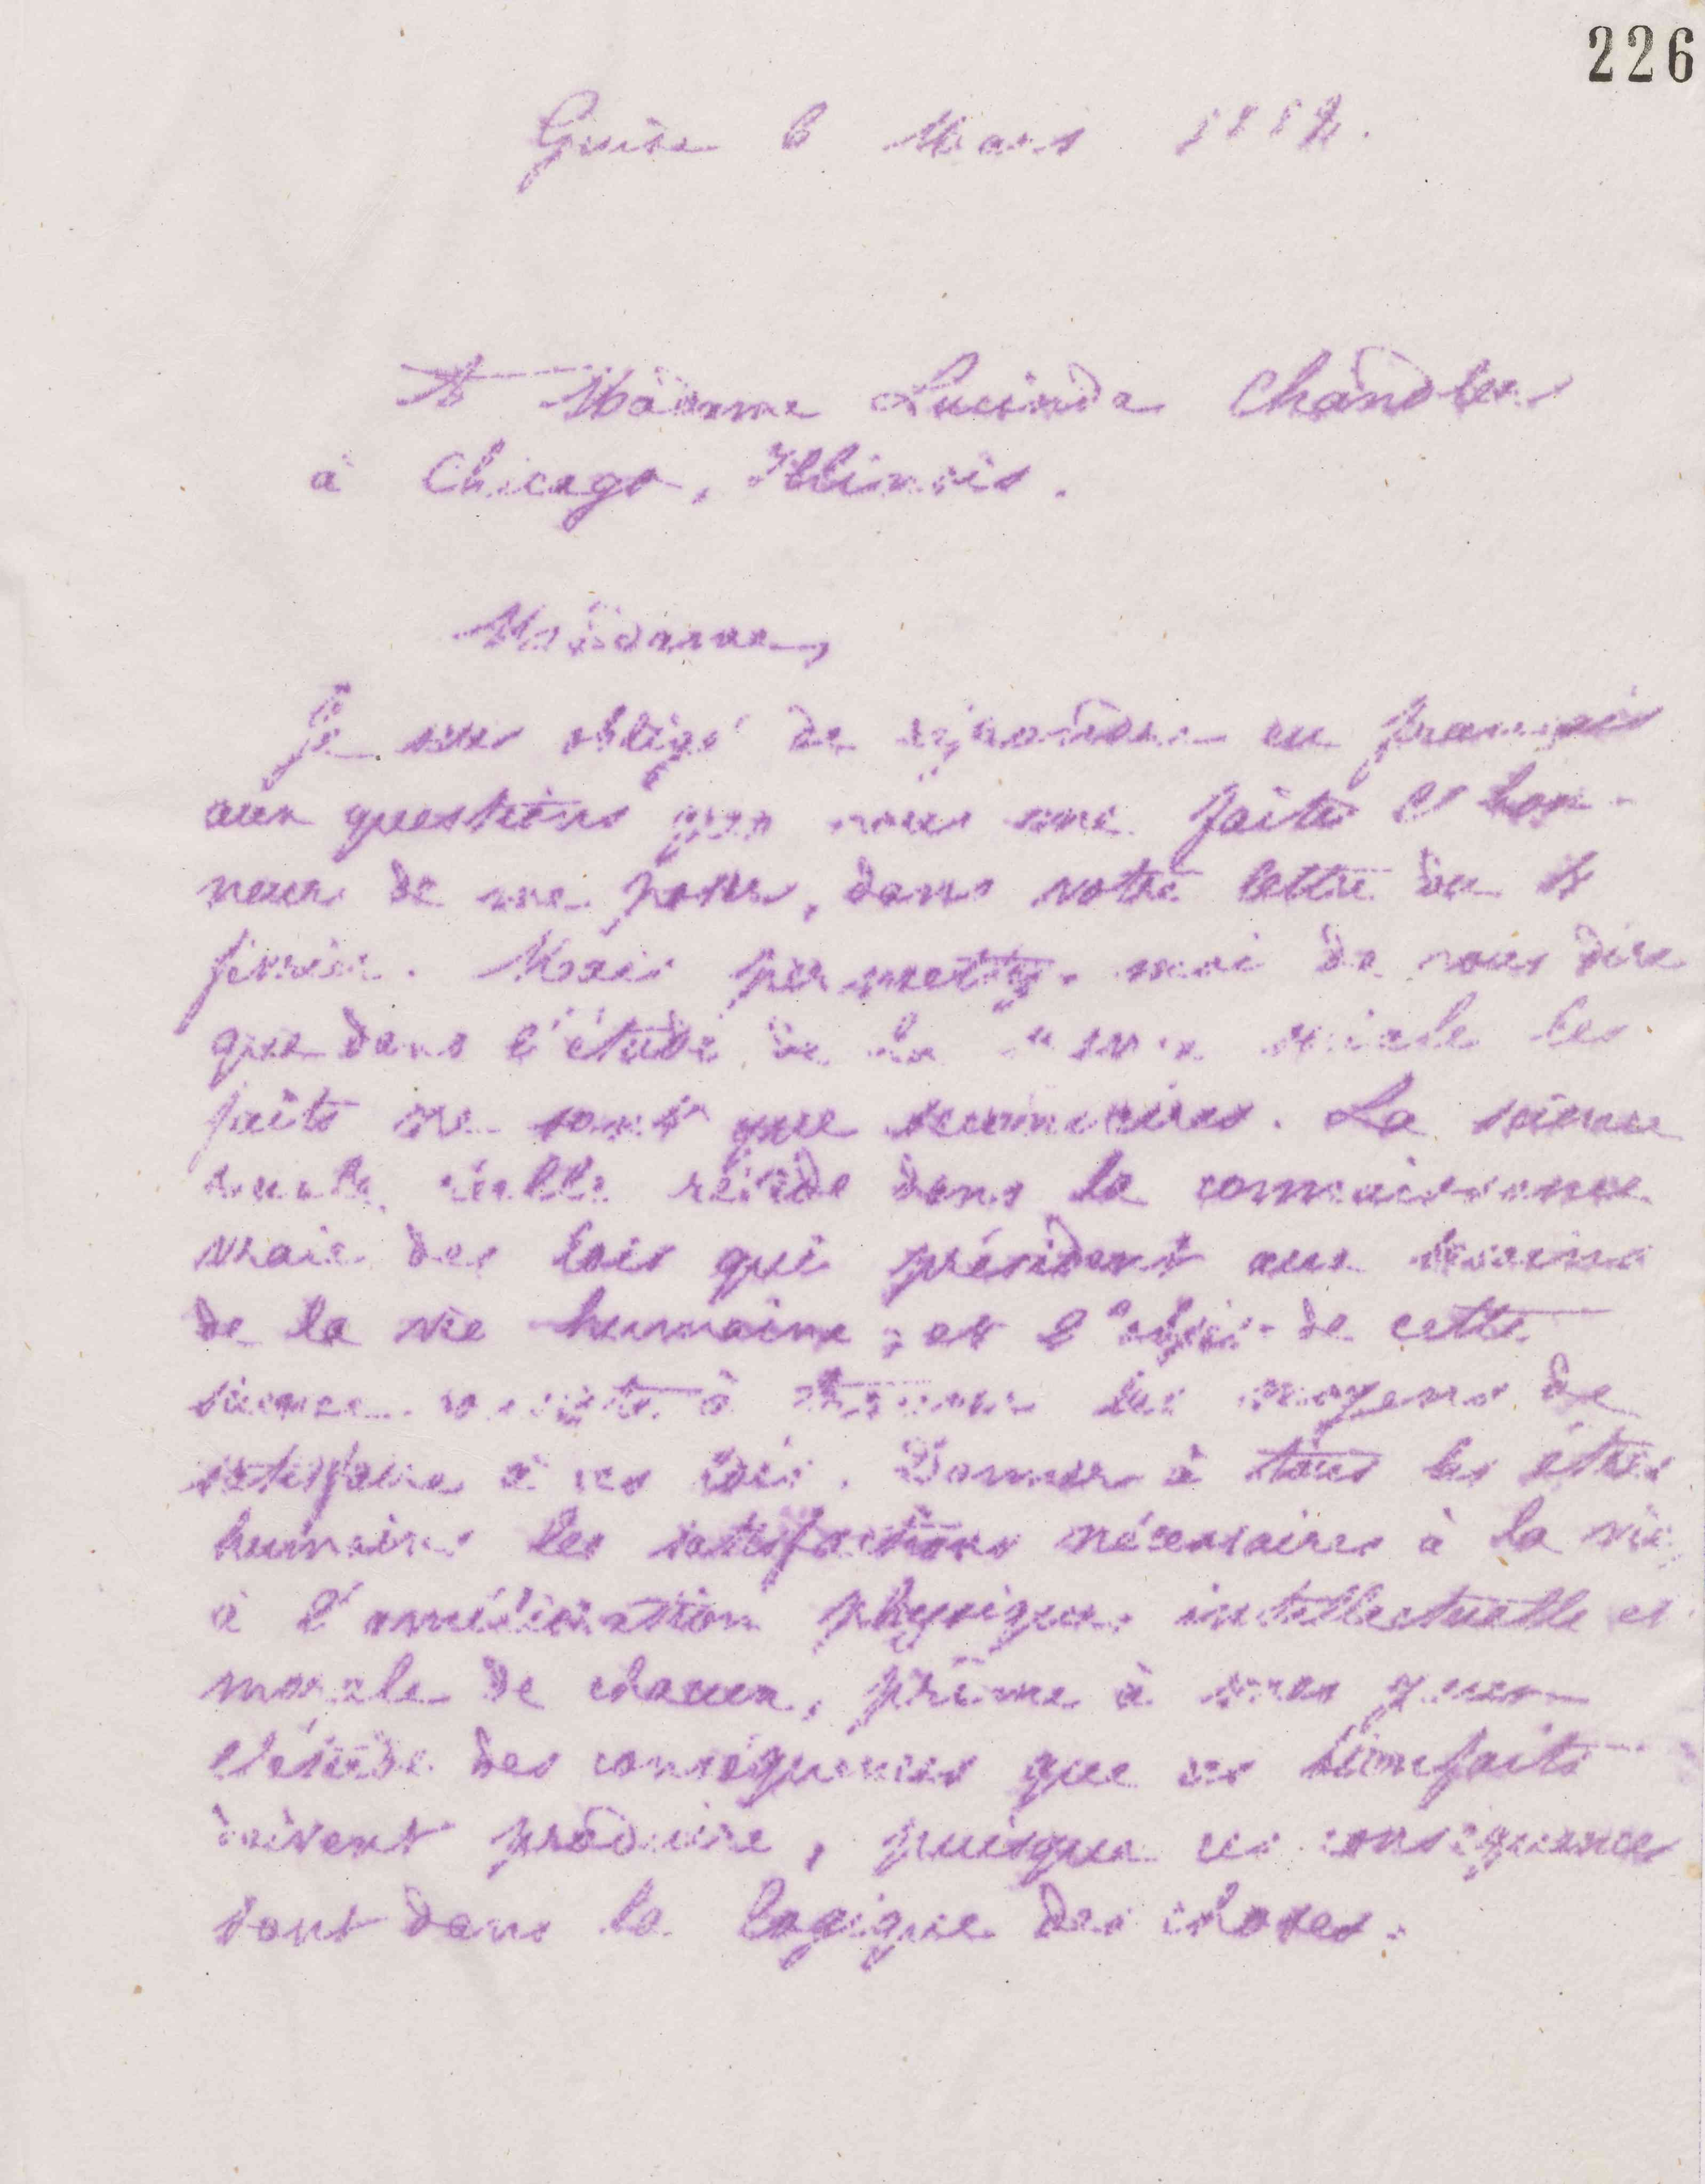 226
Guise 6 Mars 188
A Madame Lucinda Chandler
à Chicago, Illinois.
Madame,
Je suis obligé de répondre en français
aux questions que vous me faites l'hon-
neur de me poser, dans votre lettre du
février. Mais permettez-moi de vous dire
que dans l'étude de la science sociale les
faits ne sont que secondaires. La science
sociale réelle réside dans la connaissance
vraie des lois qui président aux besoins
de la vie humaine; et l'objet de cette
science consiste à trouver les moyens de
satisfaire à ces lois. Donner à tous les êtres
humains les satisfactions nécessaires à la vie,
à l'amélioration physique, intellectuelle et
morale de chacun, prime à mes yeux
l'étude des conséquences que ces bienfaits
doivent produire, puisque ces conséquences
sont dans la logique des choses.